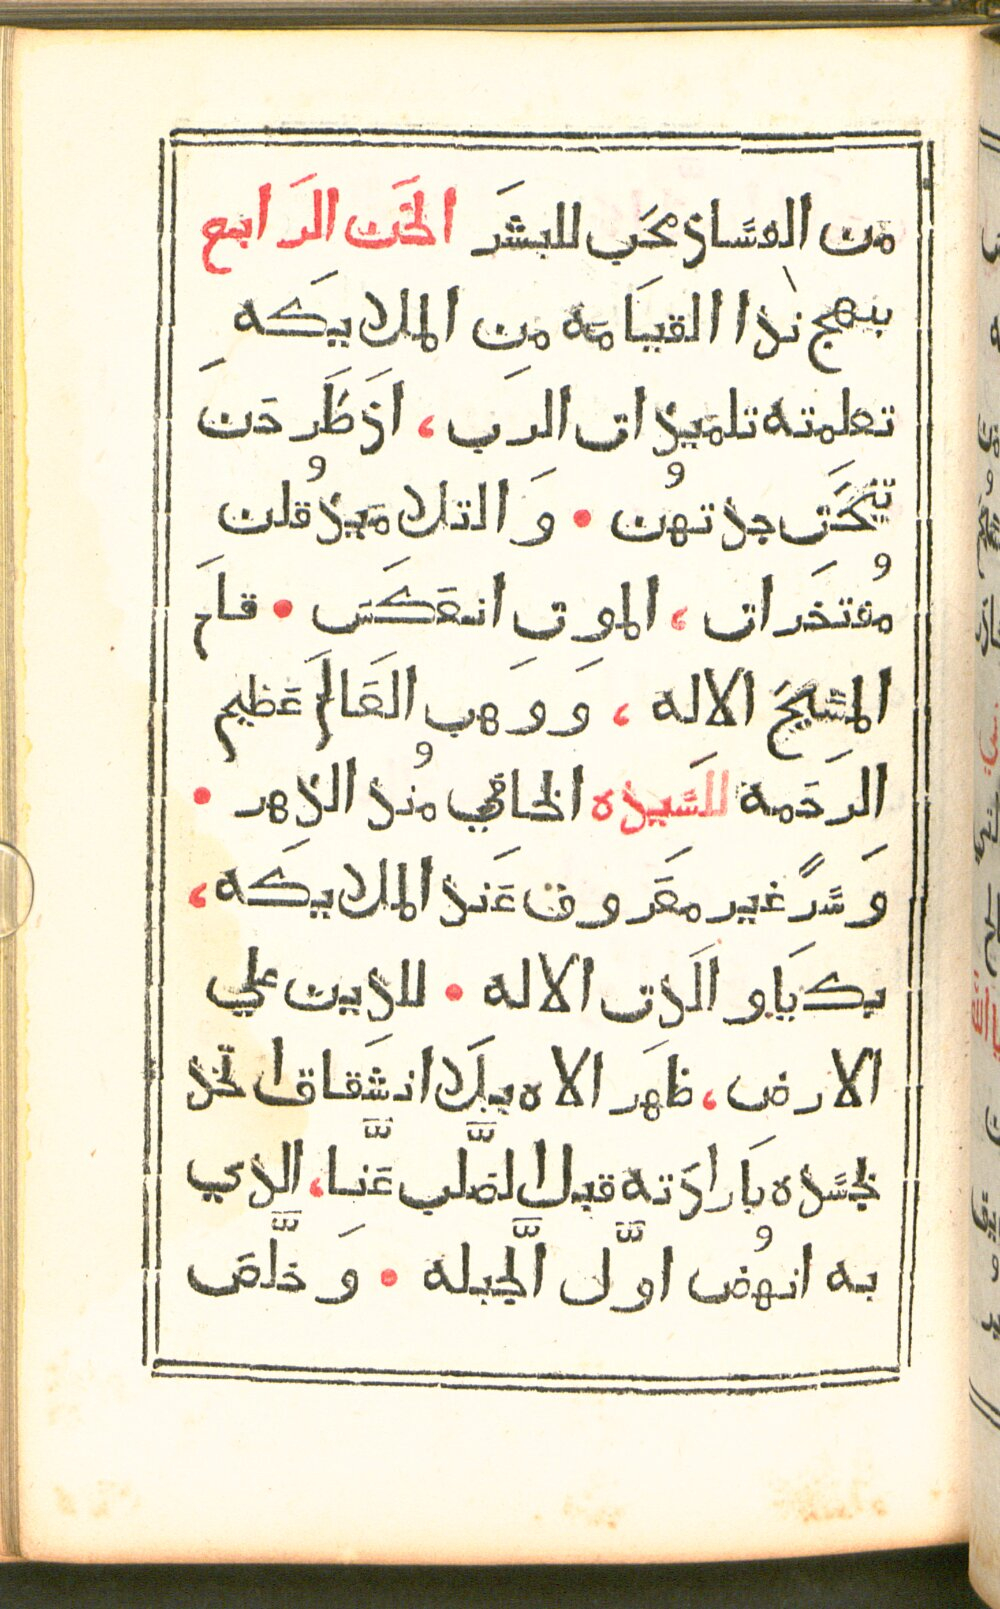 من الفساد محب للبشر اللحن الرابع
ببهج ندا القيامه من الملايكه
تعلمته تلميذات الرب ، اذ طردن
تيكت جدتهن • و التلاميذ قلن
مفتخرات ، الموت انعكس • قام
المسيح الاله ، و وهب العالم عظيم
الرحمة للسيده الخافي منذ الدهر •
و سر غير معروف عند الملايكه ،
بك يا والدت الاله • للذين علي
الارض ، ظهر الاه بلا انشقاق اتحد
بجسده بارادته قبل الصلب عنا ، الذي
به انهض اول الجبله • و خلص